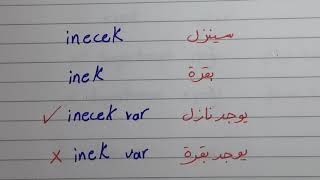 inecek سينزل
inek بقرة
✓ inecek var يوجد نازل
x inek var يوجد بقرة